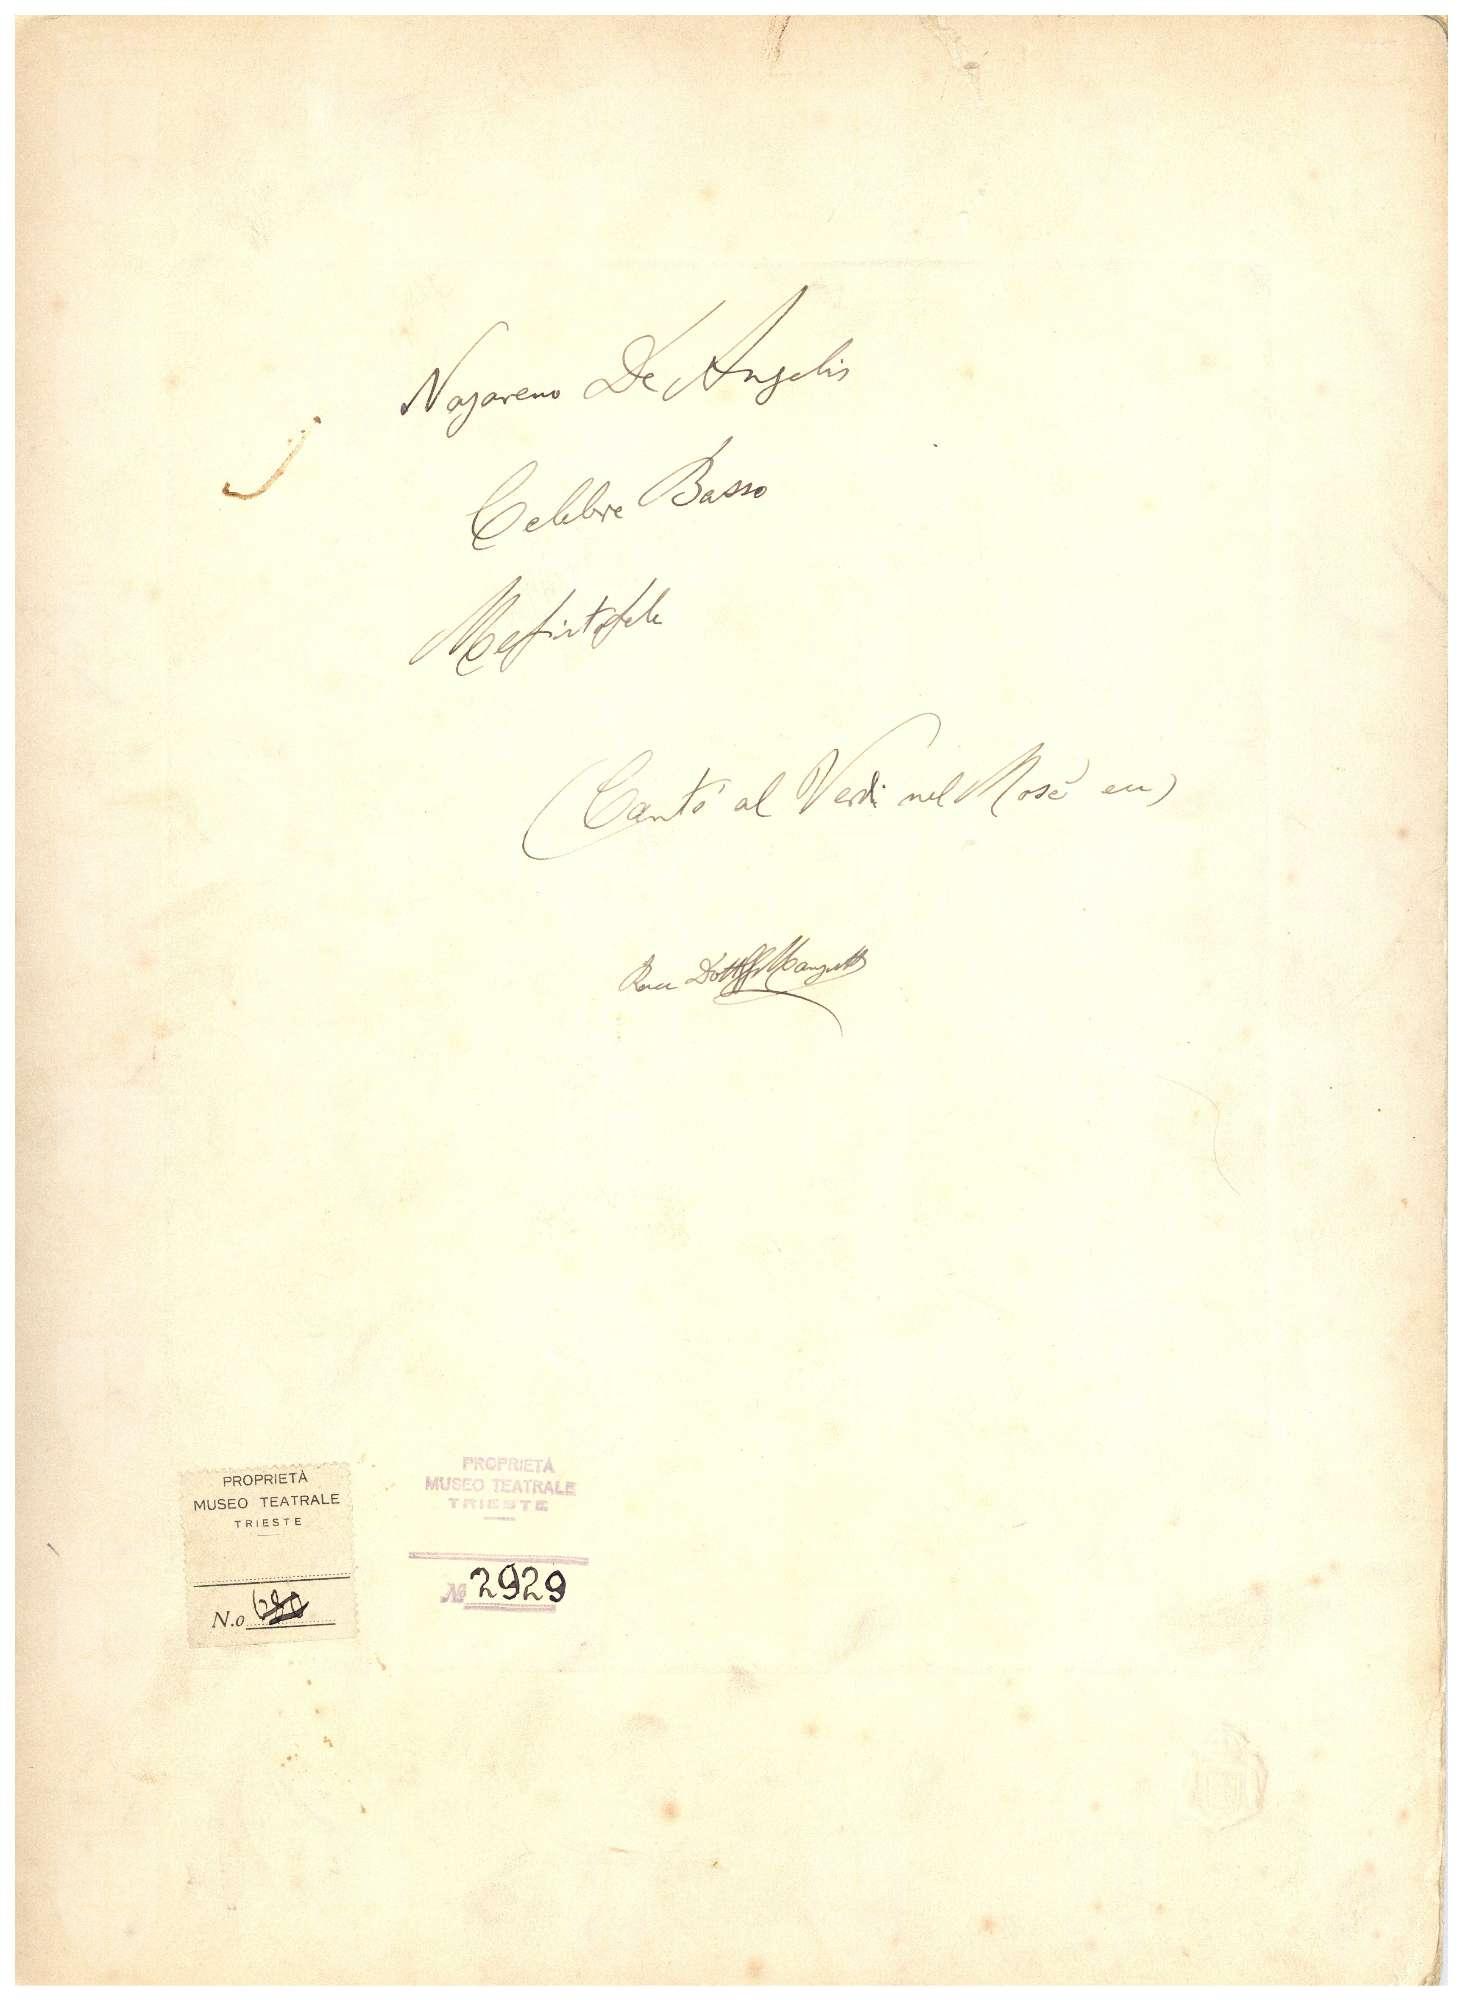 Nazareno De Angelis
Celebre Basso
Mefistofele
(Cantò al Verdi nel Mosè ecc)
Dott
PROPRIETÀ
MUSEO TEATRALE
TRIESTE
N.o 680
PROPRIETÀ
MUSEO TEATRALE
TRIESTE
№ 2929